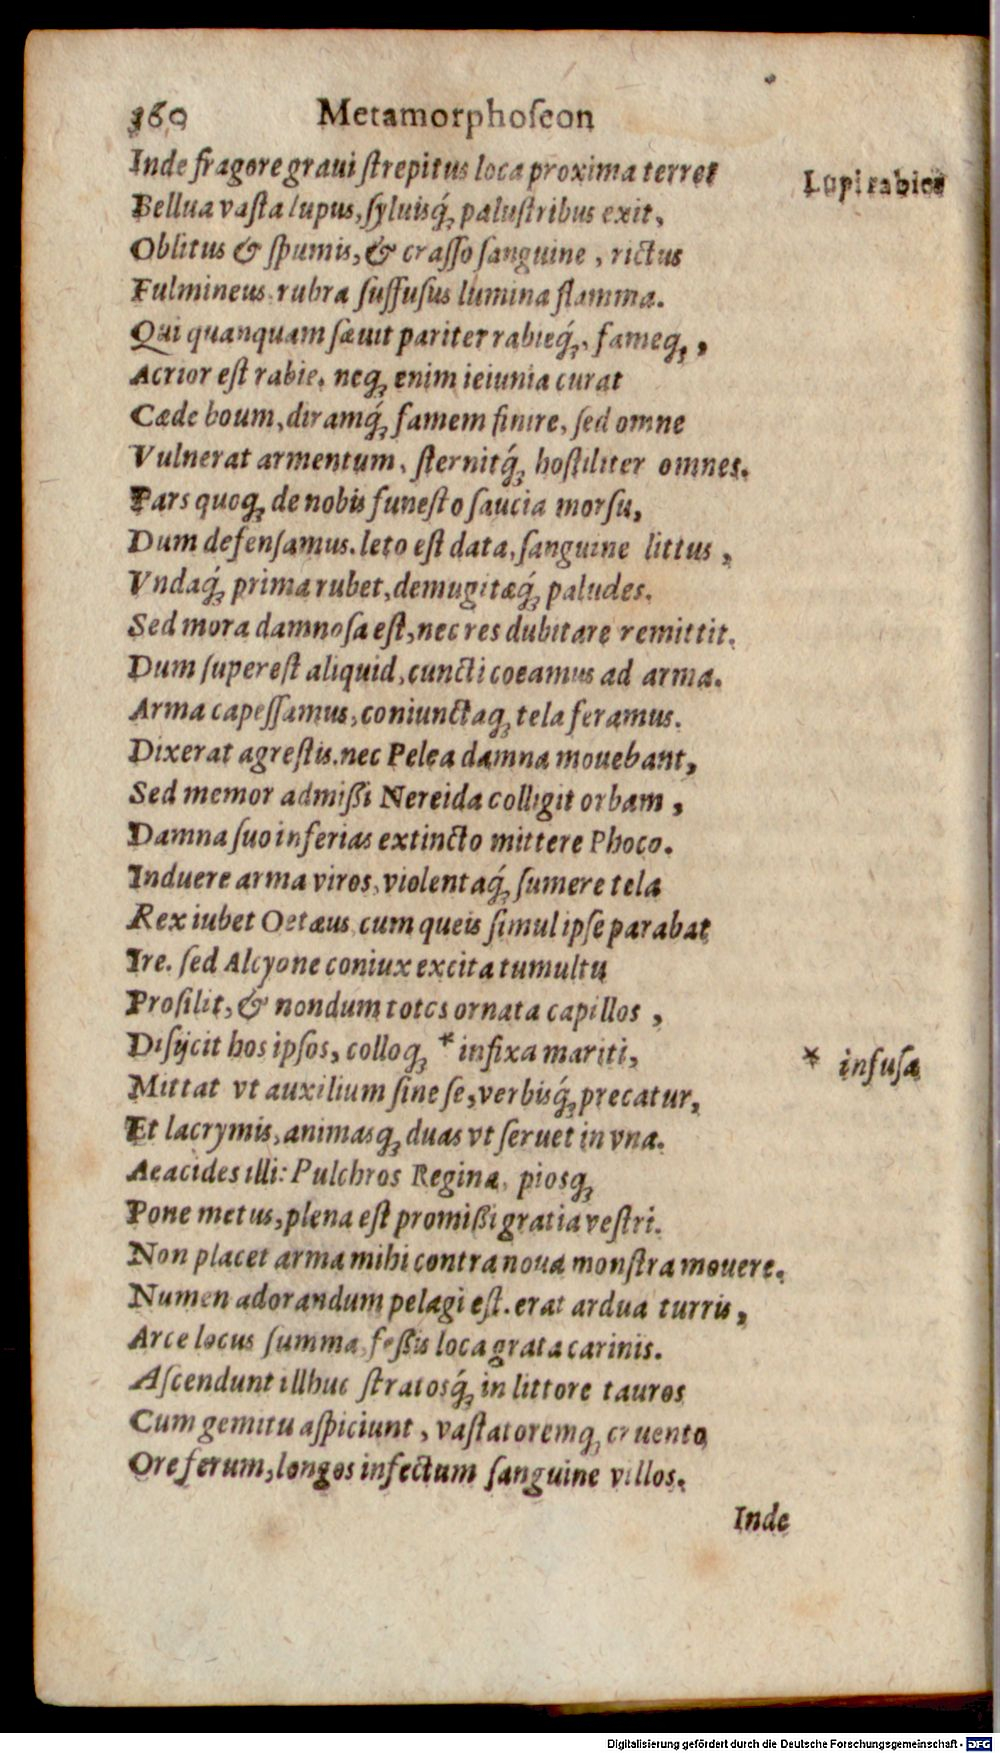 360 Metamorphoſeon
Inde fragore graui ſtrepitus loca proxima terret
Lupi rabies
Bellua vaſta lupus, ſyluisq́; paluſtribus exit,
Oblitus & ſpumis, & craſſo ſanguine, rictus
Fulmineus, rubra ſuffuſus lumina flamma.
Qui quanquam ſæuit pariter rabieq́;, fameq;,
Acrior eſt rabie. neq; enim ieiunia curat
Cæde boum, diramq́; famem finire, ſed omne
Vulnerat armentum, ſternitq́; hoſtiliter omnes.
Pars quoq; de nobis funeſto ſaucia morſu,
Dum defenſamus. leto eſt data, ſanguine littus,
Vndaq́; prima rubet, demugitæq́; paludes.
Sed mora damnoſa eſt, nec res dubitare remittit.
Dum ſupereſt aliquid, cuncti coeamus ad arma.
Arma capeſſamus, coniunctaq; tela feramus.
Dixerat agreſtis. nec Pelea damna mouebant,
Sed memor admißi Nereida colligit orbam,
Damna ſuo inferias extincto mittere Phoco.
Induere arma viros, violentaq́; ſumere tela
Rex iubet Oetæus, cum queis ſimul ipſe parabat
Ire. ſed Alcyone coniux excita tumultu
Proſilit, & nondum totos ornata capillos,
Diſijcit hos ipſos, colloq; * infixa mariti,
* infuſa
Mittat vt auxilium ſine ſe, verbisq́; precatur,
Et lacrymis, animasq; duas vt ſeruet in vna.
Aeacides illi: Pulchros Regina, piosq;
Pone metus, plena eſt promißi gratia veſtri.
Non placet arma mihi contra noua monſtra mouere.
Numen adorandum pelagi eſt. erat ardua turris,
Arce locus ſumma, feßis loca grata carinis.
Aſcendunt illhuc ſtratosq́; in littore tauros
Cum gemitu aſpiciunt, vaſtatoremq; cruento
Ore ferum, longos infectum ſanguine villos.
Inde
Digitalisierung gefördert durch die Deutsche Forschungsgemeinschaft - DFG